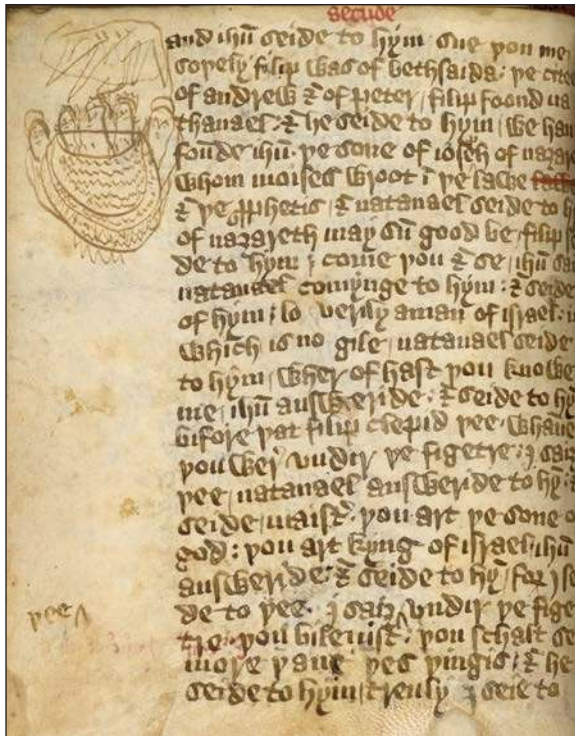 secude
and ihū seide to hym sue þou me
sopely filip was of bethsaida: þe citee
of andrew & of peter / filip foond na
thanael: & he seide to hym / we han
founde ihū. þe sone of ioseph of nazare
whom moises wroot ī þe lawe
& þe pphetis / & natanael seide to h
of nazareth may sū good be / filip s
de to hym : come þou & se / ihū sai
natanael comynge to hym : & seide
of hym : lo verily aman of israel: i
which is no gile / natanael seide
to hym / wher of hast þou knowe
me / ihū answeride : & seide to hȳ
bifore þat filip clepid þee. whāne
þou wer vndir þe figetre: I saiȝ
þee / natanael answeride to hȳ: &
seide / maistr. þou art þe sone o
god: þou art kyng of israel / ihū
answeride: & seide to hȳ / for I se
de to þee. I saiȝ vndir þe fige
þee
tre. þou bileuist / þou schalt se
more þane þes þingis: & he
seide to hym / treuly I seie to